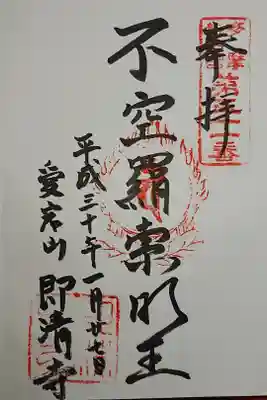 奉拝
不空羂索明王
平成三十年一月廿七日
愛宕山 即清寺